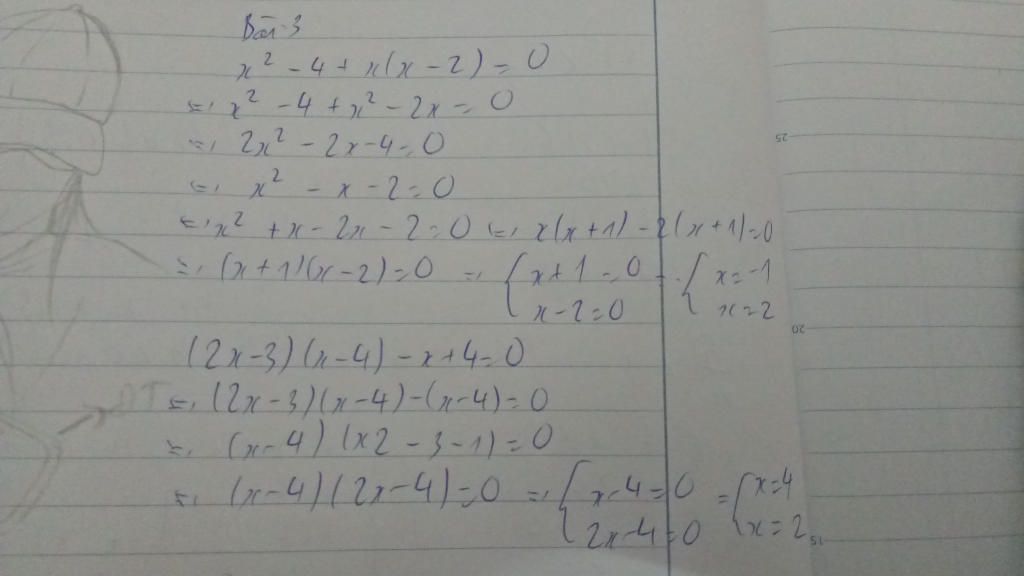 Bài 3
x² - 4 + x(x - 2) = 0
⇔ x² - 4 + x² - 2x = 0
⇔ 2x² - 2x - 4 = 0
⇔ x² - x - 2 = 0
⇔ x² + x - 2x - 2 = 0 ⇔ x(x + 1) - 2(x + 1) = 0
⇔ (x + 1)(x - 2) = 0 ⇔ { x + 1 = 0 ⇔ { x = -1
x - 2 = 0 x = 2
(2x - 3)(x - 4) - x + 4 = 0
⇔ (2x - 3)(x - 4) - (x - 4) = 0
⇔ (x - 4)(x2 - 3 - 1) = 0
⇔ (x - 4)(2x - 4) = 0 ⇔ { x - 4 = 0 = { x = 4
2x - 4 = 0 x = 2
25
20
15